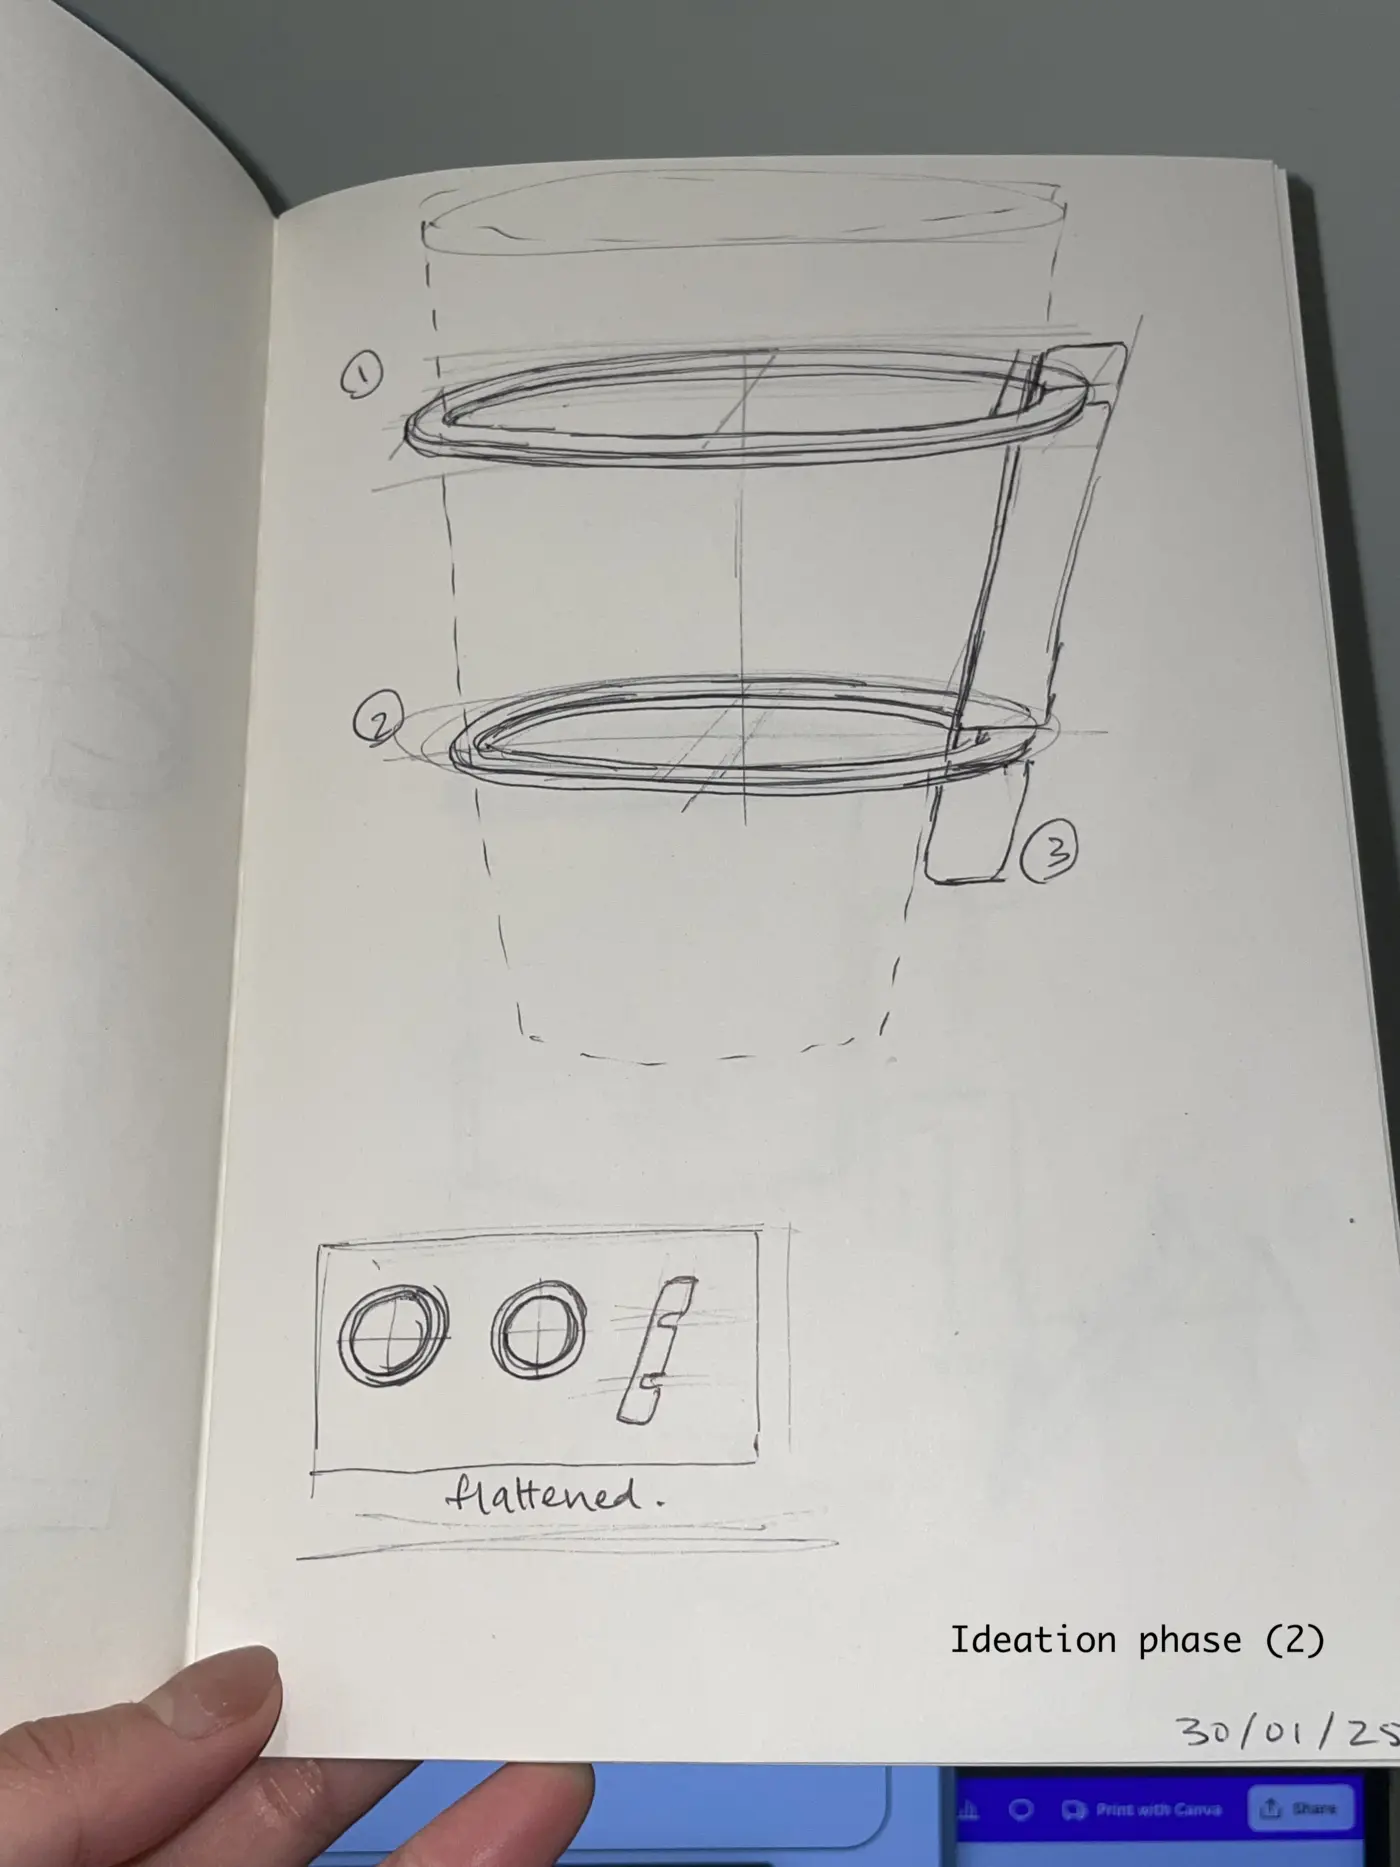 1
2
3
flattened.
Ideation phase (2)
30/01/25
Print with Canva
Share